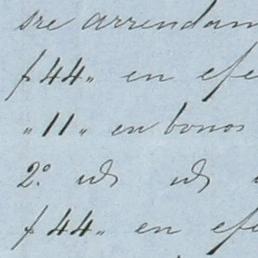 sre arrendam
$44„ en efe
„11„ en bonos
2.º id id
$44„ en efe